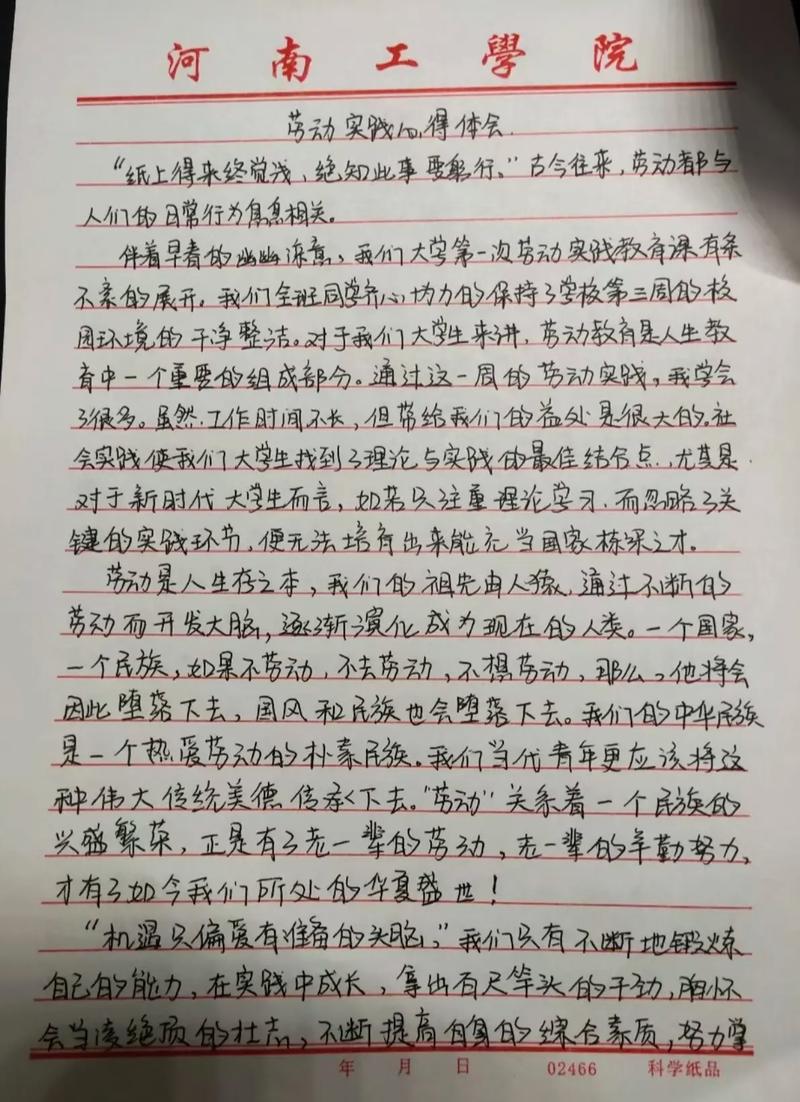 河南工學院
劳动实践心得体会
“纸上得来终觉浅，绝知此事要躬行。”古今往来，劳动都与
人们的日常行为息息相关。
伴着早春的幽幽凉意，我们大学第一次劳动实践教育课有条
不紊的展开。我们全班同学齐心协力的保持了学校第三周的校
园环境的干净整洁。对于我们大学生来讲，劳动教育是人生教
育中一个重要的组成部分。通过这一周的劳动实践，我学会
了很多。虽然工作时间不长，但带给我们的益处是很大的。社
会实践使我们大学生找到了理论与实践的最佳结合点，尤其是
对于新时代大学生而言，如若只注重理论学习，而忽略了关
键的实践环节，便无法培育出来能充当国家栋梁之才。
劳动是人生存之本，我们的祖先由人猿，通过不断的
劳动而开发大脑，逐渐演化成为现在的人类。一个国家，
一个民族，如果不劳动，不去劳动，不想劳动，那么。他将会
因此堕落下去，国风和民族也会堕落下去。我们的中华民族
是一个热爱劳动的朴素民族。我们当代青年更应该将这
种伟大传统美德传承下去。“劳动”关系着一个民族的
兴盛繁荣，正是有了老一辈的劳动，老一辈的辛勤努力，
才有了如今我们所处的华夏盛世！
“机遇只偏爱有准备的头脑。”我们只有不断地锻炼
自己的能力，在实践中成长，拿出百尺竿头的干劲，胸怀
会当凌绝顶的壮志，不断提高自身的综合素质，努力学
年 月 日 02466 科学纸品